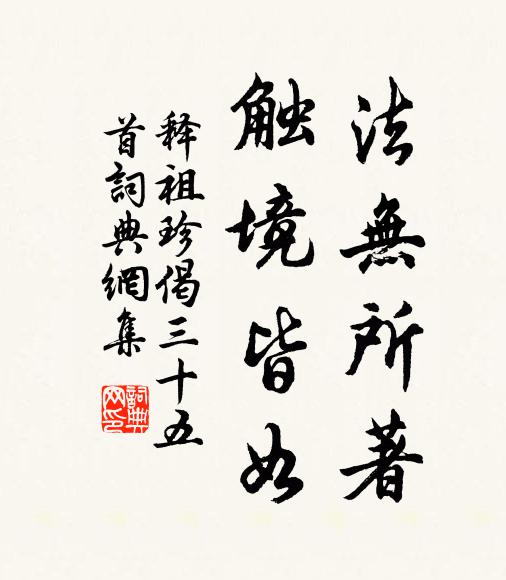 法無所著
触境皆如
释祖珍偈三十五
首詞典網集
詞典
网印